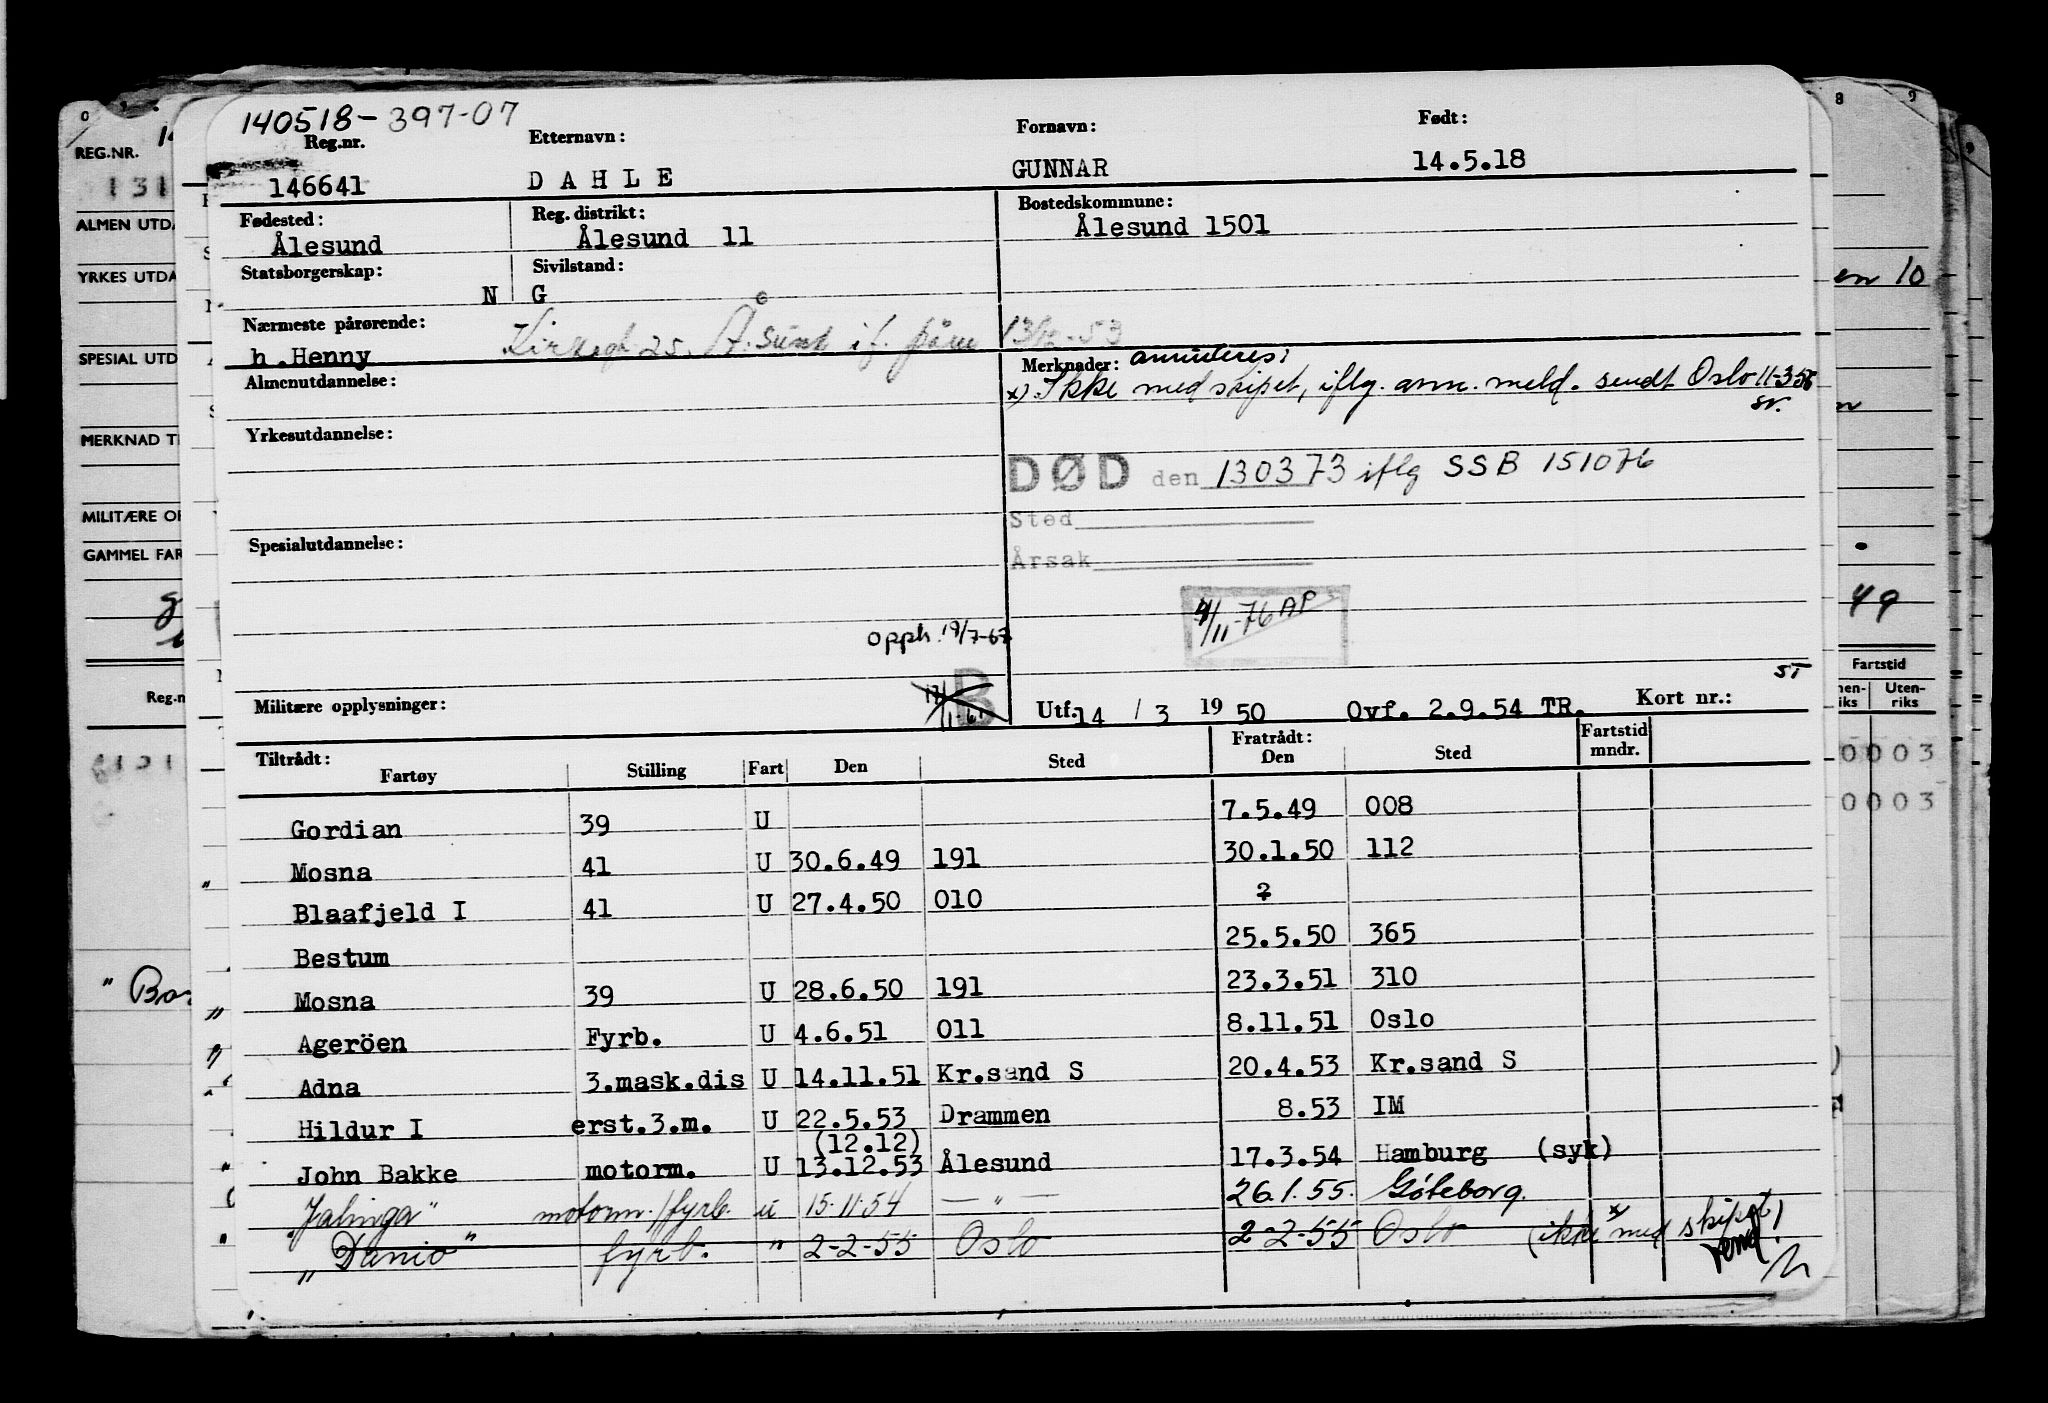 140518-397-07
Reg.nr. Etternavn: Fornavn: Født:
146641 DAHLE GUNNAR 14.5.18
Fødested: Reg. distrikt: Bostedskommune:
Ålesund Ålesund 11 Ålesund 1501
Statsborgerskap: Sivilstand:
N G
Nærmeste pårørende:
h.Henny
Merknader: annulleres:
x) Ikke med skipet, iflg. ann. meld. sendt Oslo 11-3-55
sv.
Almenutdannelse:
Yrkesutdannelse:
DØD den 130373 iflg SSB 151076
Sted
Årsak
Spesialutdannelse:
4/11-76 AP
opph. 19/7-67
B
ST
Militære opplysninger: Utf. 14 / 3 19 50 Ovf. 2.9.54 TR. Kort nr.:
Tiltrådt: Fratrådt: Fartstid
Fartøy Stilling Fart Den Sted Den Sted mndr.
Gordian 39 U 7.5.49 008
" Mosna 41 U 30.6.49 191 30.1.50 112
Blaafjeld I 41 U 27.4.50 010 ?
Bestum 25.5.50 365
" Mosna 39 U 28.6.50 191 23.3.51 310
" Ageröen Fyrb. U 4.6.51 011 8.11.51 Oslo
Adna 3.mask.dis U 14.11.51 Kr.sand S 20.4.53 Kr.sand S
Hildur I erst.3.m. U 22.5.53 Drammen 8.53 IM
(12.12)
" John Bakke motorm. U 13.12.53 Ålesund 17.3.54 Hamburg (syk)
"Jalinga" motorm./fyrb. u 15.11.54 — " — 26.1.55. Göteborg.
"Danio" fyrb. " 2-2-55 Oslo 2-2-55 Oslo (ikke x) med skipet)
REG.NR.
131
ALMEN UTDA
YRKES UTDA
SPESIAL UTD
MERKNAD T
MILITÆRE OP
GAMMEL FAR
Reg.n
en 10
49
Fartstid
Uten-
riks
0003
0003